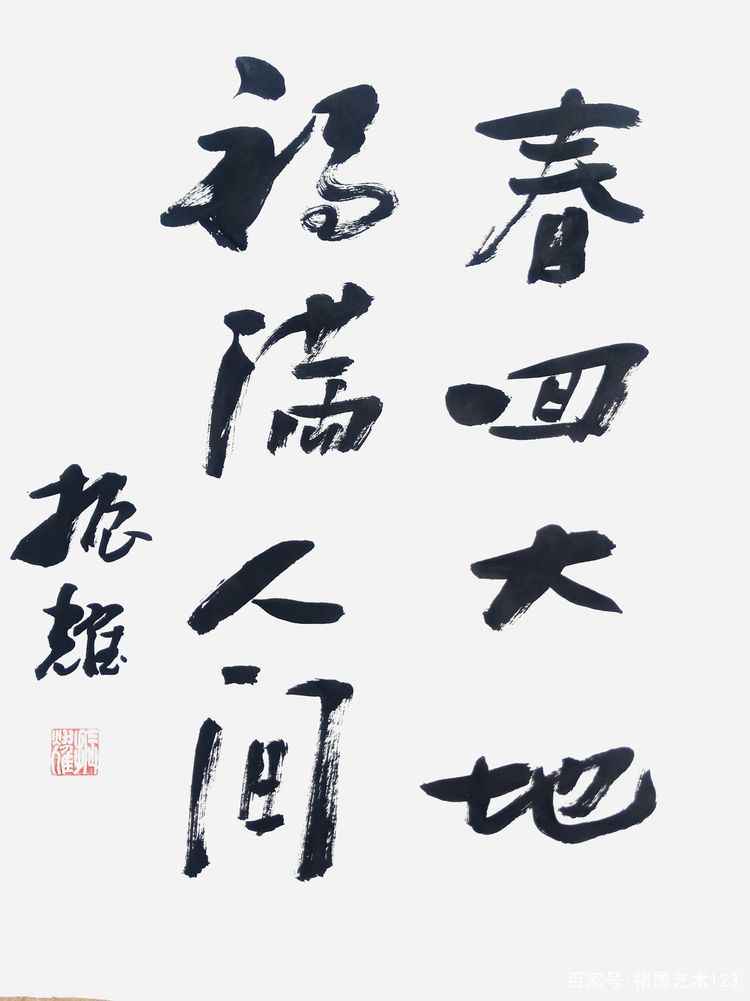 春回大地
福满人间
振耀
百家号/楮墨艺术123